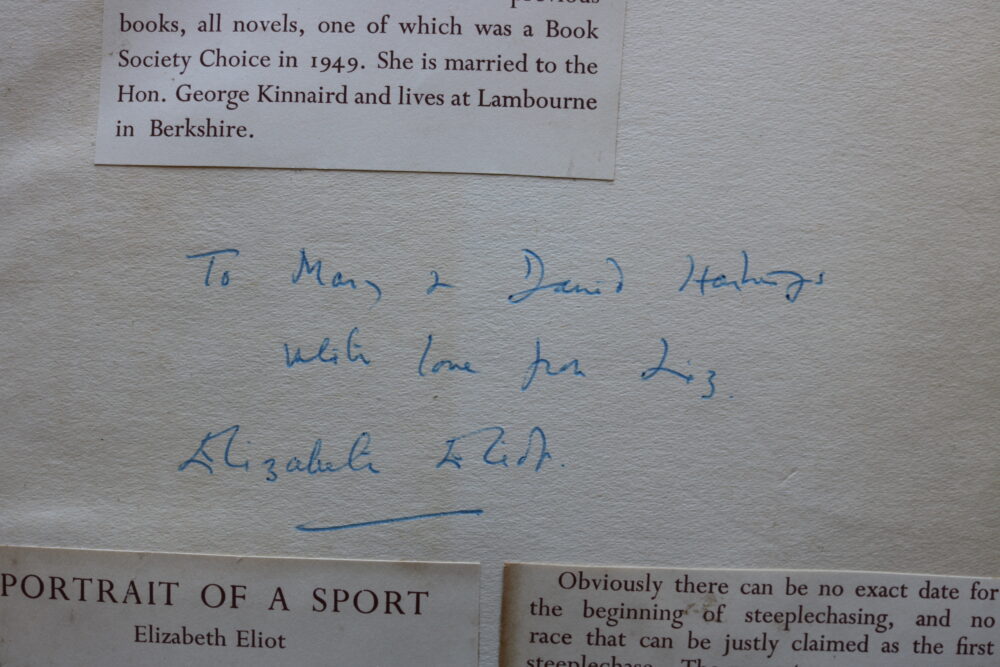 previous
books, all novels, one of which was a Book
Society Choice in 1949. She is married to the
Hon. George Kinnaird and lives at Lambourne
in Berkshire.
To Mary & David Hastings
with love from Liz.
Elizabeth Eliot.
PORTRAIT OF A SPORT
Elizabeth Eliot
Obviously there can be no exact date for
the beginning of steeplechasing, and no
race that can be justly claimed as the first
steeplechase. The